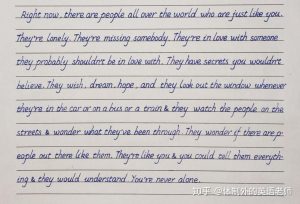 Right now, there are people all over the world who are just like you.
They're lonely. They're missing somebody. They're in love with someone
they probably shouldn't be in love with. They have secrets you wouldn't
believe. They wish, dream, hope, and they look out the window whenever
they're in the car or on a bus or a train & they watch the people on the
streets & wonder what they've been through. They wonder if there are p-
eople out there like them. They're like you & you could tell them everyth-
ing & they would understand. You're never alone.
知乎 @体制外的英语老师